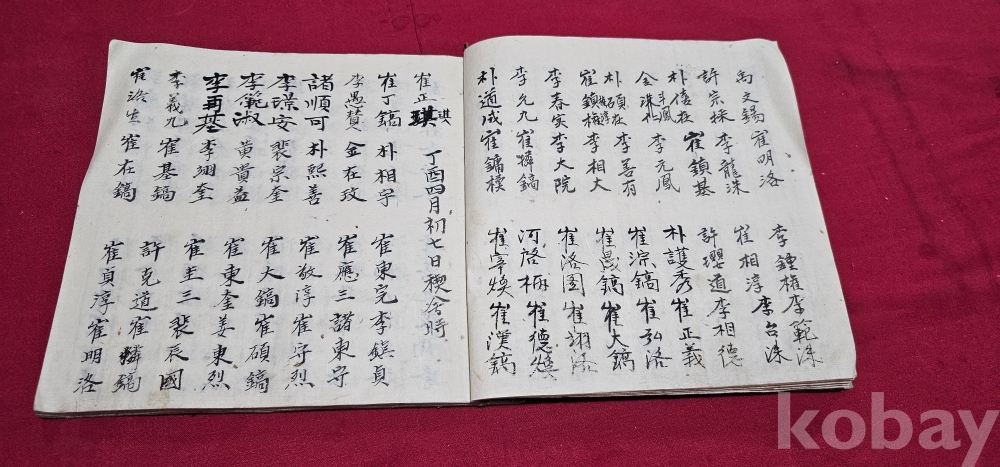 禹文錫 崔明洛
許宗採 李龍洙
朴僖在 崔鎮基
李元鳳
朴碩在 李善有
崔鎮權 李相大
李春実 李大院
李允九 崔獜鎬
朴道成 崔鏞模
李鍾權 李範洙
崔相淳 李台洙
許瓔道 李相德
朴護秀 崔正義
崔淙鎬 崔弘洛
崔晟鎬 崔大鎬
崔洛圖 崔翊洛
河啓柄 崔德煥
崔宰煥 崔漢鎬
崔正琪 琪
丁酉四月初七日稧會時
崔丁鎬 朴相守
李愚贊 金在玟
諸順可 朴熙善
李璟安 裴宗奎
李範淑 黃貴益
李再基 李翊奎
李義九 崔基鎬
崔浩生 崔在鎬
崔東完 李鎮貞
崔應三 諸東守
崔敬淳 崔守烈
崔大鎬 崔碩鎬
崔東奎 姜東烈
崔圭三 裴辰國
許克道 崔獜鎬
崔貞淳 崔明洛
kobay